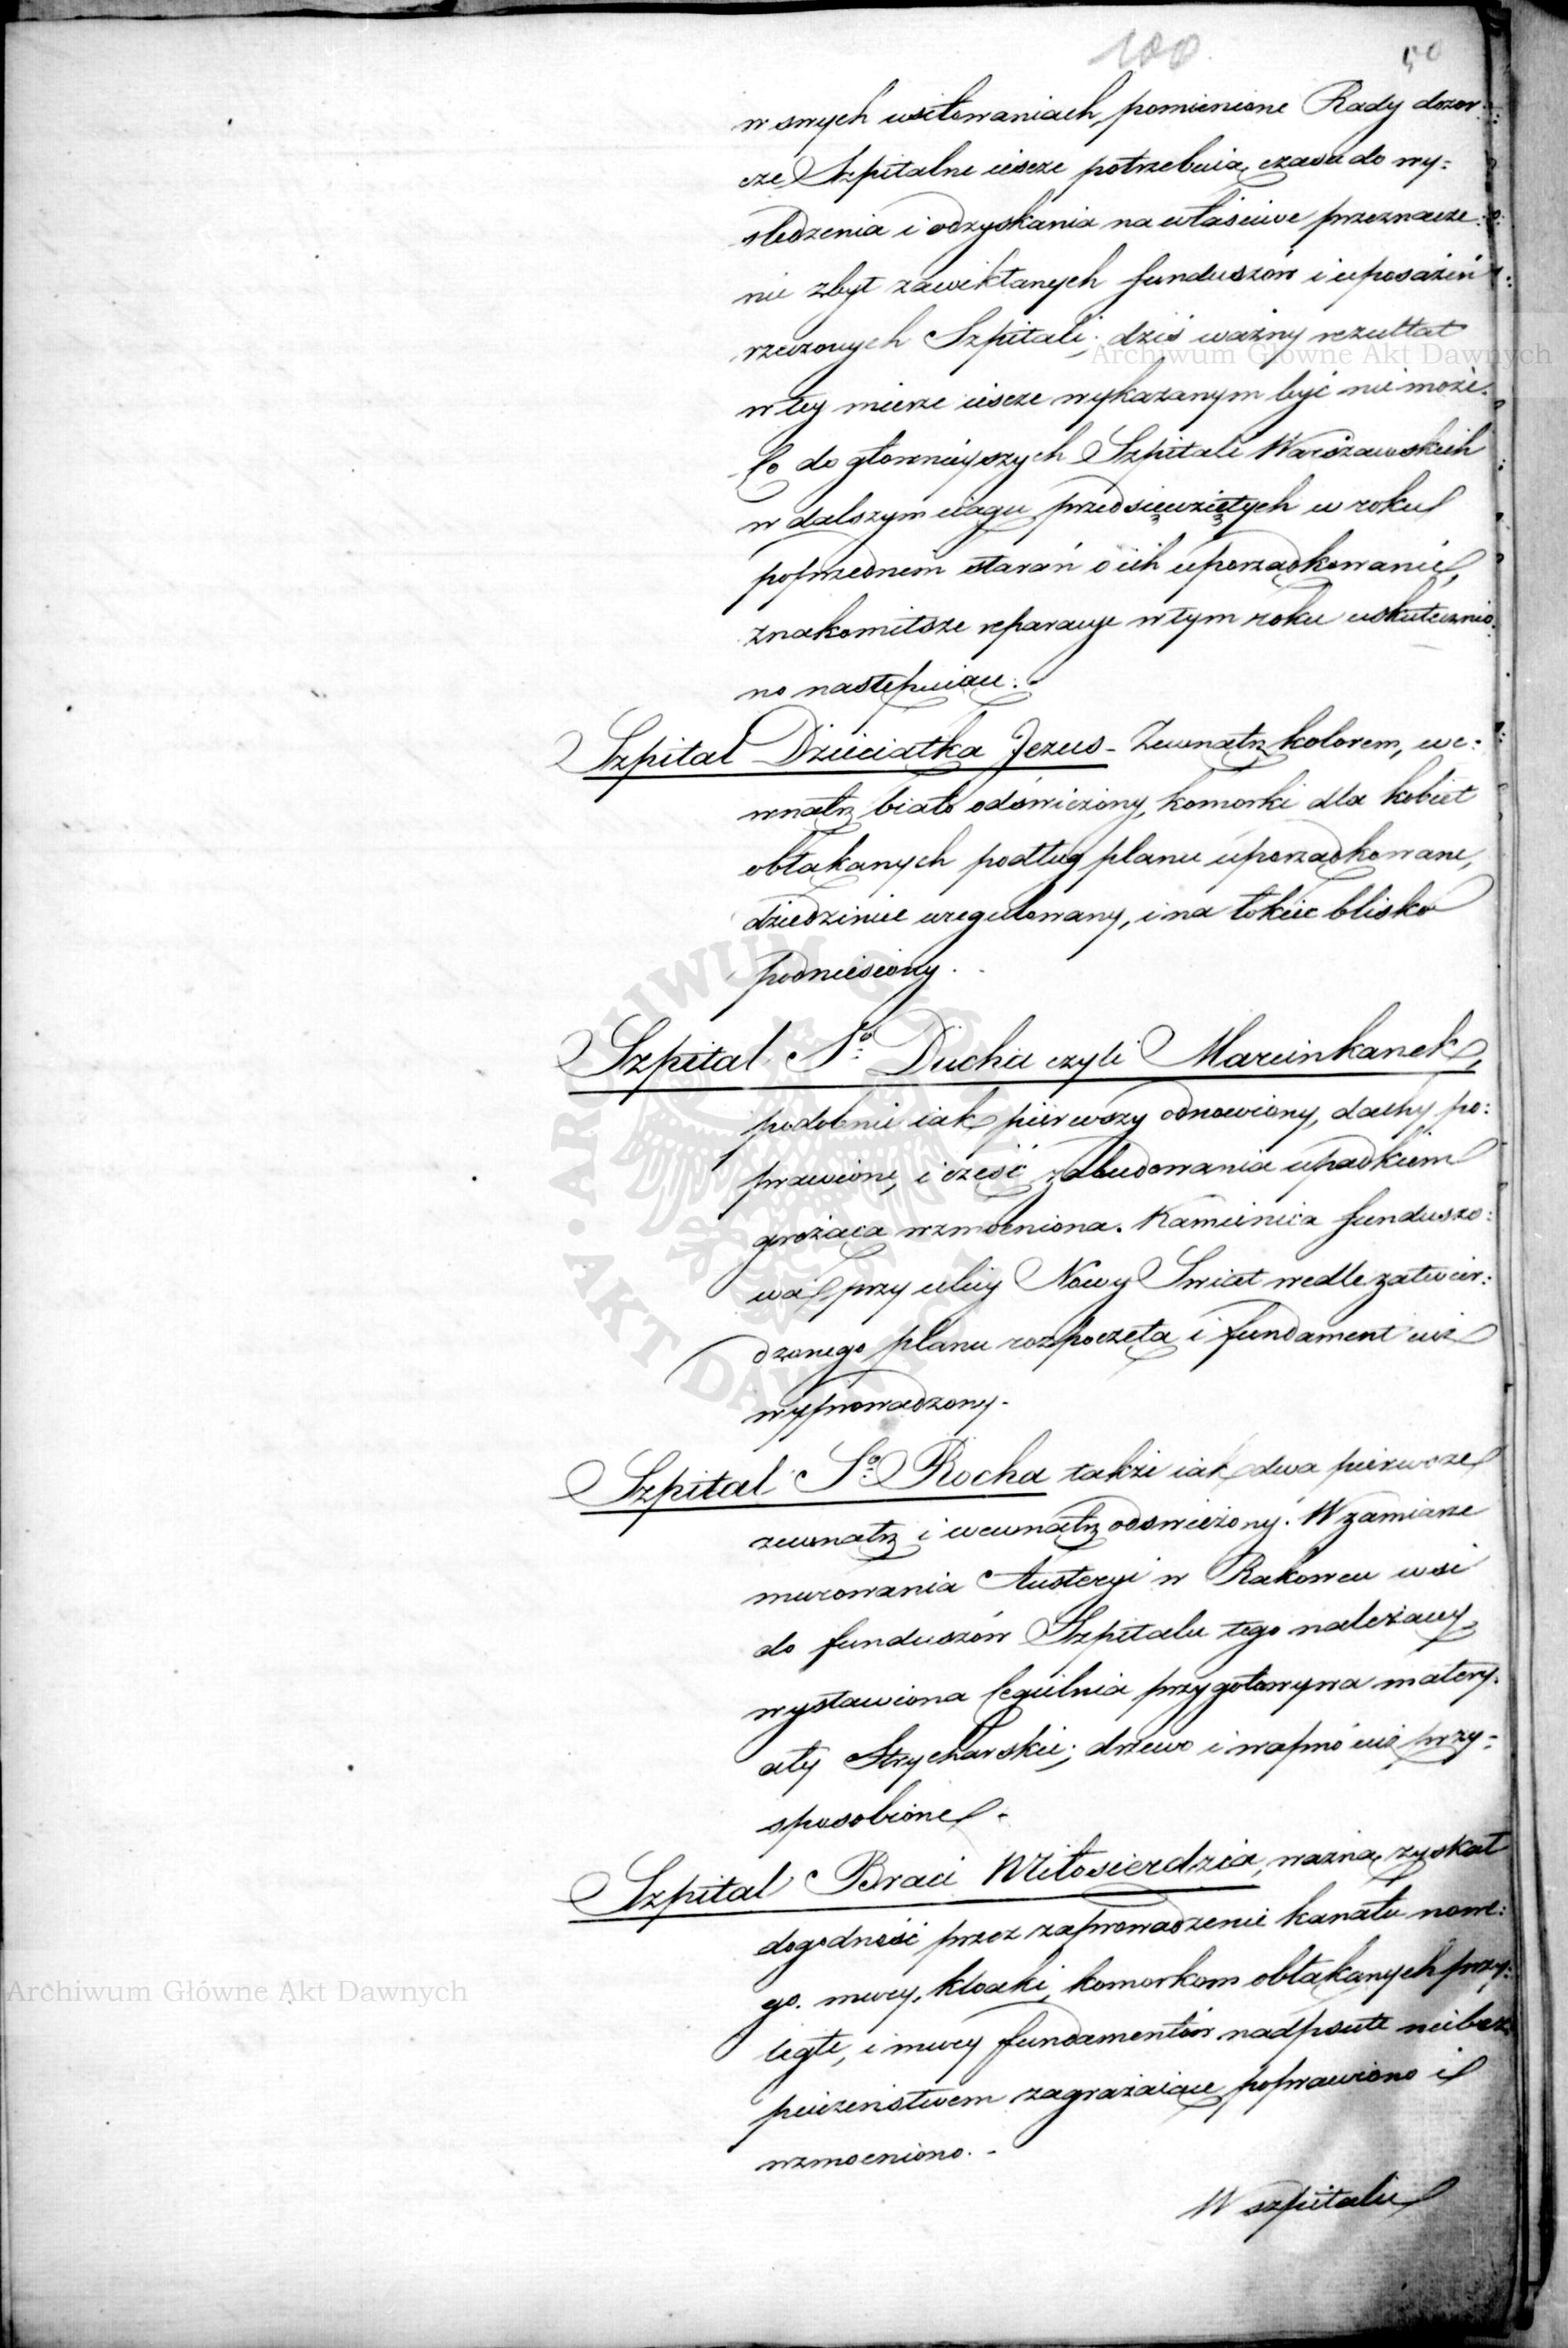 100
50
w swych usiłowaniach, pomienione Rady dozor:
cze Szpitalne ieszcze potrzebuią czasu do wy:
śledzenia i odzyskania na właściwe przeznacze:
nie zbyt zawikłanych funduszów i uposażeń
rzeczonych Szpitali; dziś ważny rezultat
w tey mierze ieszcze wykazanym być nie może.
Co do głownieyszych Szpitali Warszawskich
w dalszym ciągu przedsięwziętych w roku
poprzednem starań o ich uporządkowanie,
znakomitsze reparacye w tym roku uskutecznio:
no następuiące:
Szpital Dzieciątka Jezus - Zewnątrz kolorem, we:
wnątrz biało odświeżony, komorki dla kobiet
obłąkanych podług planu uporządkowane,
dziedziniec uregulowany, i na łokieć blisko
podniesiony.
Szpital Sgo Ducha czyli Marcinkanek,
podobnie iak pierwszy odnowiony, dachy po:
prawione, i część zabudowania upadkiem
grożąca wzmocniona. Kamienica funduszo:
wa przy ulicy Nowy Swiat wedle zatwier:
dzonego planu rozpoczęta i fundament iuż
wyprowadzony.
Szpital Sgo Rocha takze iak dwa pierwsze
zewnątrz i wewnątrz odswieżony. W zamiarze
murowania Austeryi w Rakowcu wsi
do funduszów Szpitalu tego należącey,
wystawiona Cegielnia przygotowywa matery:
ały Strycharskie; drzewo i wapno iuż przy:
sposobione.
Szpital Braci Miłosierdzia, ważną zyskał
dogodność przez zaprowadzenie kanału nowe:
go. mury, kloaki, komorkom obłąkanych przy:
ległe, i mury fundamentów nadpsute niebez
pieczeństwem zagrażaiące poprawiono i
wzmocniono.
W szpitalu
Archiwum Główne Akt Dawnych
Archiwum Główne Akt Dawnych